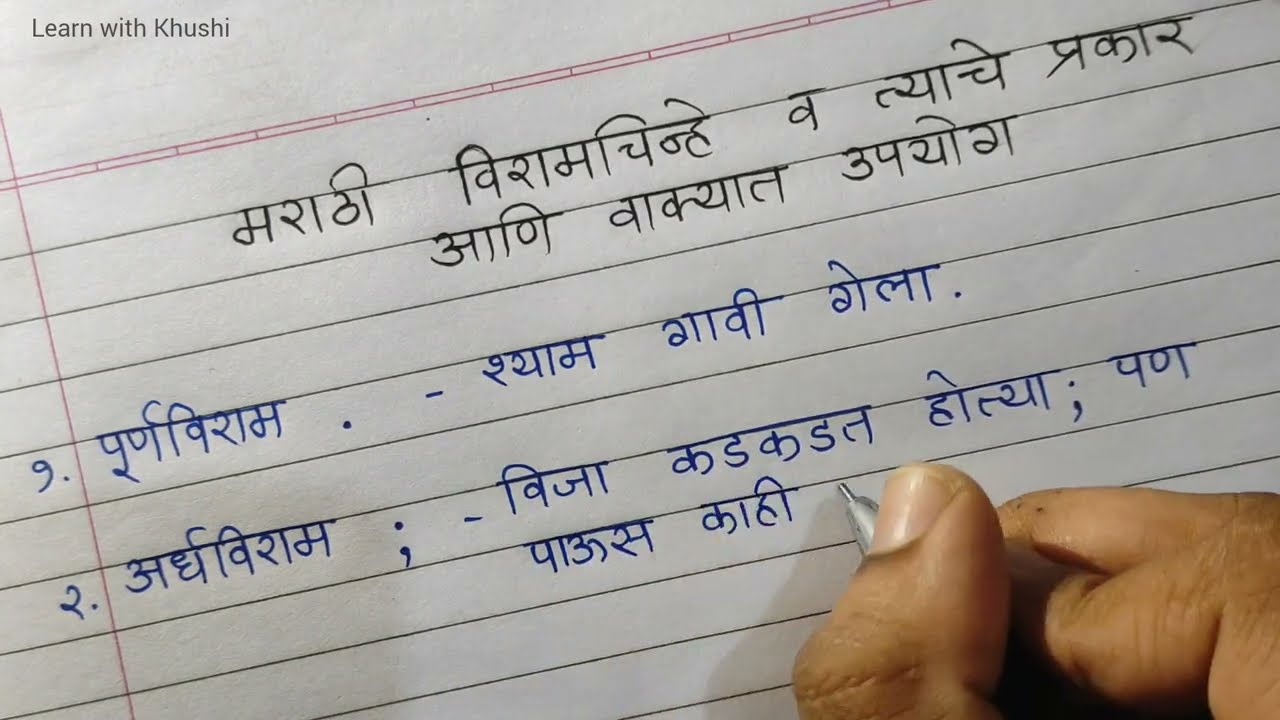 Learn with Khushi
मराठी विरामचिन्हे व त्याचे प्रकार
आणि वाक्यात उपयोग
१. पूर्णविराम . - श्याम गावी गेला.
२. अर्धविराम ; - विजा कडकडत होत्या; पण
पाऊस काही